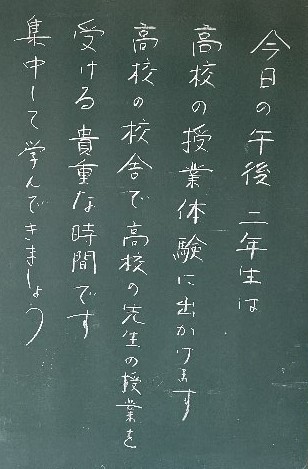 今日の午後 二年生は
高校の授業体験に出かけます
高校の校舎で高校の先生の授業を
受ける貴重な時間です
集中して学んできましょう